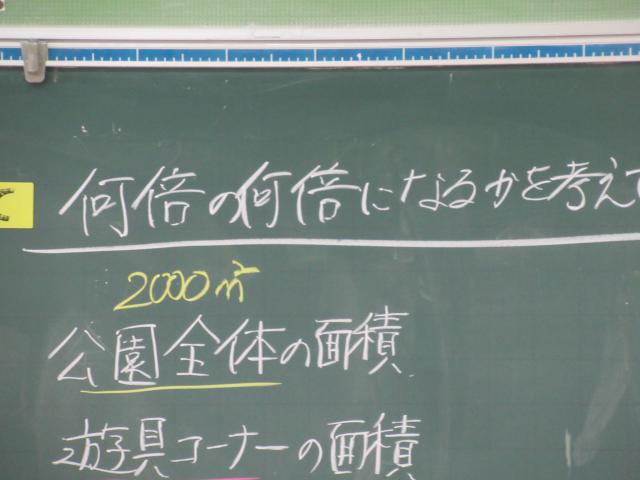 何倍の何倍になるかを考えて
2000㎡
公園全体の面積
遊具コーナーの面積